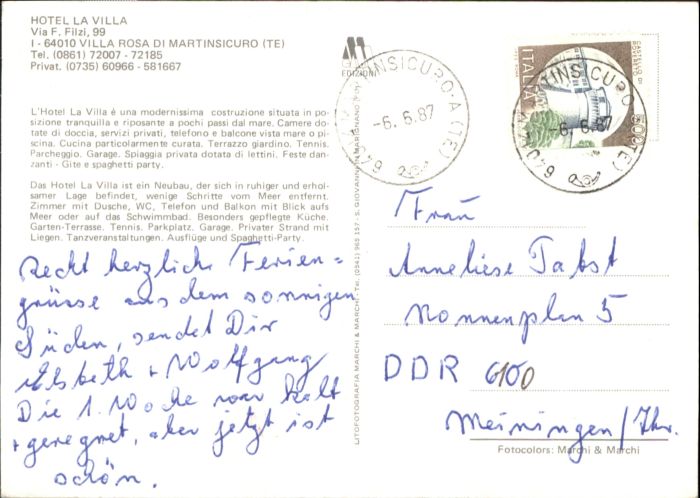 HOTEL LA VILLA
Via F. Filzi, 99
I - 64010 VILLA ROSA DI MARTINSICURO (TE)
Tel. (0861) 72007 - 72185
Privat. (0735) 60966 - 581667
L'Hotel La Villa è una modernissima costruzione situata in po-
sizione tranquilla e riposante a pochi passi dal mare. Camere do-
tate di doccia, servizi privati, telefono e balcone vista mare o pi-
scina. Cucina particolarmente curata. Terrazzo giardino. Tennis.
Parcheggio. Garage. Spiaggia privata dotata di lettini. Feste dan-
zanti - Gite e spaghetti party.
Das Hotel La Villa ist ein Neubau, der sich in ruhiger und erhol-
samer Lage befindet, wenige Schritte vom Meer entfernt.
Zimmer mit Dusche, WC, Telefon und Balkon mit Blick aufs
Meer oder auf das Schwimmbad. Besonders gepflegte Küche.
Garten-Terrasse. Tennis. Parkplatz. Garage. Privater Strand mit
Liegen. Tanzveranstaltungen. Ausflüge und Spaghetti-Party.
Recht herzliche Ferien=
grüsse aus dem sonnigen
Süden, sendet Dir
Elsbeth + Wolfgang
Die 1. Woche war kalt
+ geregnet, aber jetzt ist
schön.
EDIZIONI
LITOFOTOGRAFIA MARCHI & MARCHI - Tel. (0541) 965 157 - S. GIOVANNI IN MARIGNANO
MARTINSICURO (TE)
-6.6.87
ITALIA
500
MARTINSICURO (TE)
-6.6.87
Frau
Anneliese Tabst
Nonnenplan 5
DDR 6100
Meiningen/Thr.
Fotocolors: Marchi & Marchi